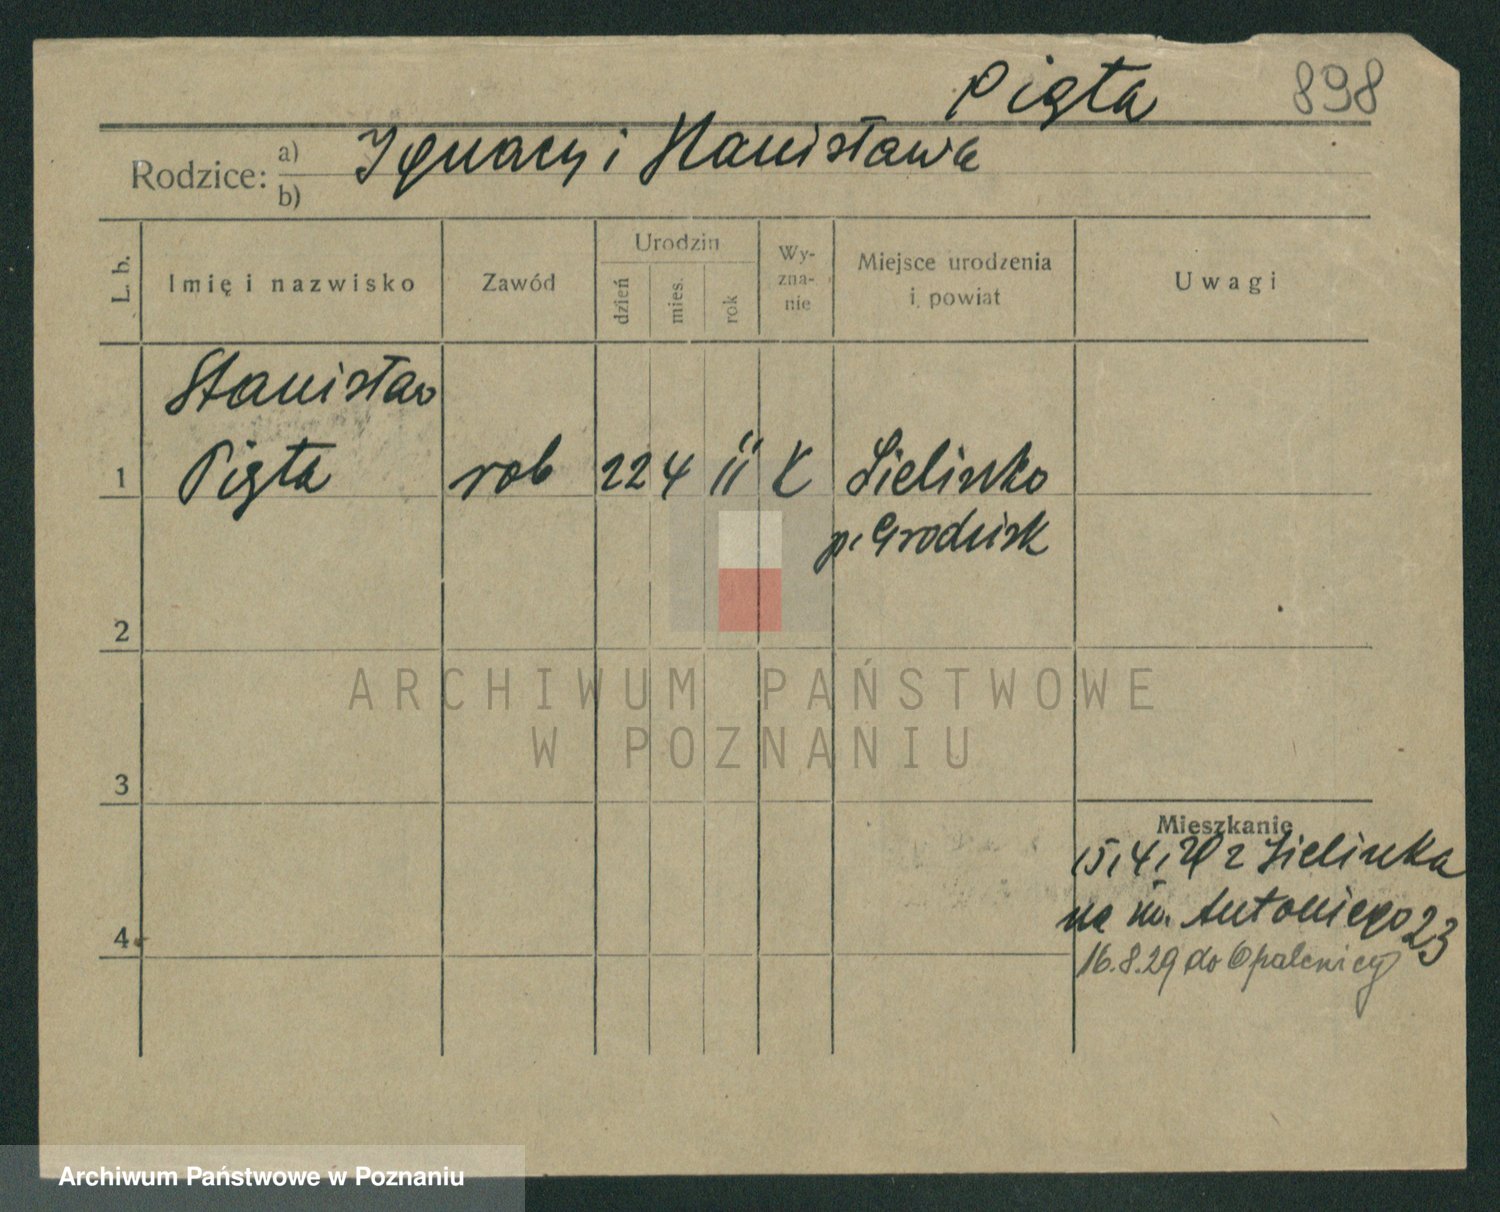 Piąta 898
Rodzice: a) Ignacy i Stanisława
b)
L. b. Imię i nazwisko Zawód Urodzin dzień mies. rok Wyznanie Miejsce urodzenia i powiat Uwagi
Stanisław
1 Piąta rob 22 4 11 K Sielinko
p. Grodzisk
2
ARCHIWUM PAŃSTWOWE
W POZNANIU
3
Mieszkanie
15.4. z Sielinka
na św. Antoniego 23
4 16.8.29 do Opalenicy
Archiwum Państwowe w Poznaniu